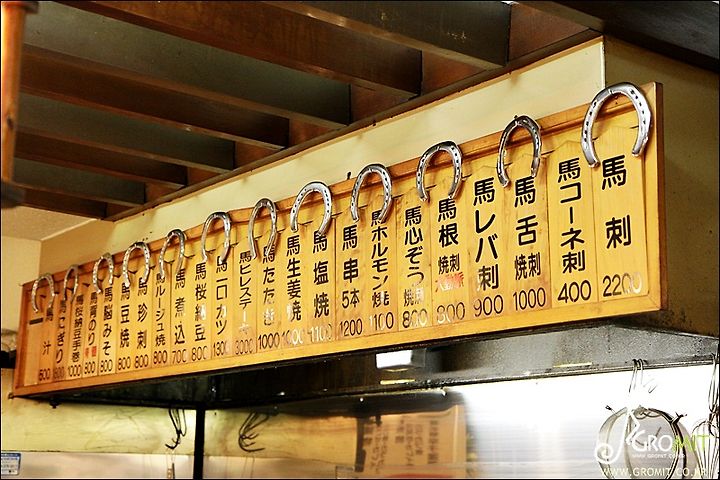 馬刺
2200
馬コーネ刺
400
馬舌
焼刺
1000
馬レバ刺
900
馬根
焼刺
大動脈
800
馬心ぞう
焼刺
800
馬ホルモン焼
1100
馬串
5本
1200
馬塩焼
1100
馬生姜焼
1000
馬たたき
1000
馬ヒレステーキ
3000
馬一口カツ
1300
馬桜納豆
800
馬煮込
700
馬ルージュ焼
800
馬珍刺
800
馬豆焼
800
馬脳みそ
800
馬背のり
800
馬桜納豆手巻
1000
馬にぎり
800
馬汁
600
GROMIT
WWW.GROMIT.CO.KR
WWW.GROMIT.CO.KR